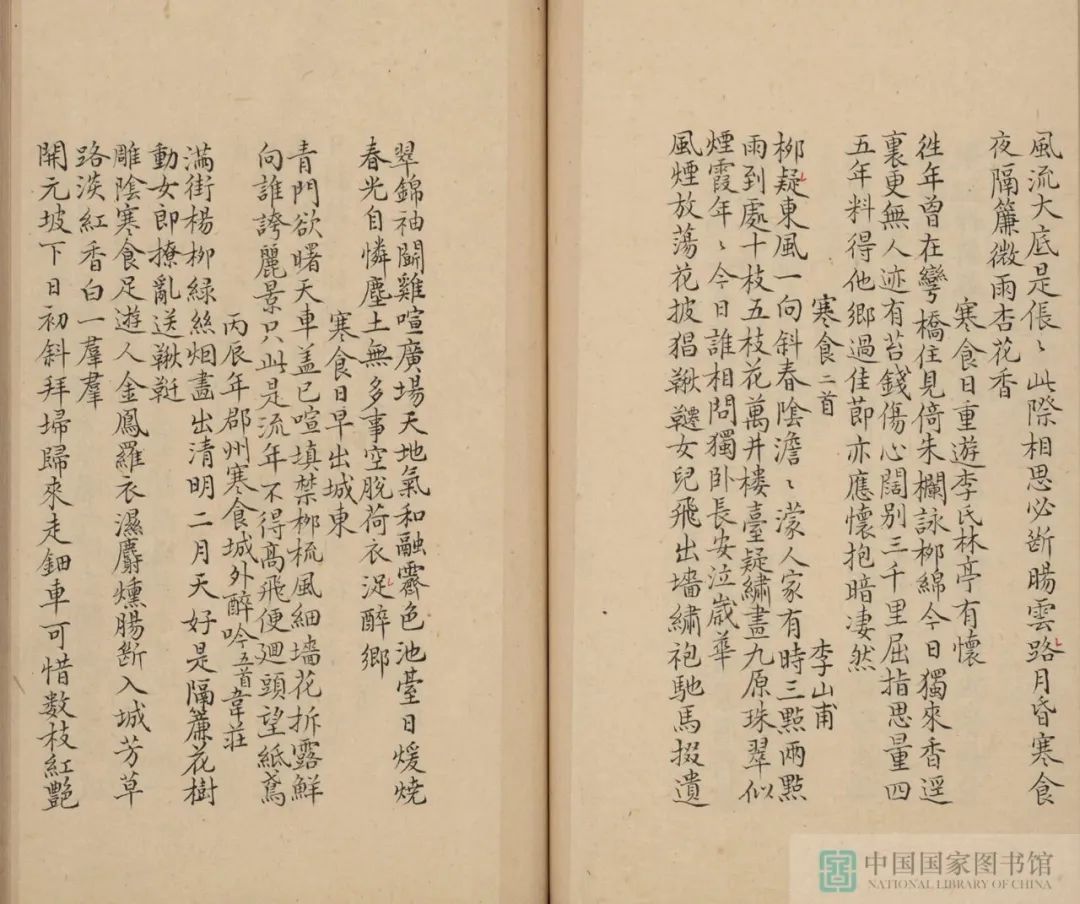 風流大底是倀〻此際相思必断腸雲路月昏寒食
夜隔簾微雨杏花香
寒食日重遊李氏林亭有懷
徃年曾在彎橋住見倚朱欄詠栁綿今日獨來香逕
裏更無人迹有苔錢傷心闊别三千里屈指思量四
五年料得他鄉過佳節亦應懷抱暗凄然
寒食二首 李山甫
栁疑東風一向斜春陰澹〻濛人家有時三點兩點
雨到處十枝五枝花萬井楼臺疑繡畫九原珠翠似
煙霞年〻今日誰相問獨卧長安泣嵗華
風煙放蕩花披猖鞦韆女兒飛出墻繡袍馳馬掇遺
翠錦袖鬬雞喧廣場天地氣和融霽色池臺日煖燒
春光自憐塵土無多事空脫荷衣浞醉鄉
寒食日早出城東
青門欲曙天車盖已喧填禁栁梳風細墻花拆露鮮
向誰誇麗景只此是流年不得髙飛便廻頭望紙鳶
丙辰年鄜州寒食城外醉吟五首韋莊
满街楊柳緑絲烟畫出清明二月天好是隔簾花樹
動女郎撩亂送鞦韆
雕陰寒食足遊人金鳳羅衣濕麝燻腸斷入城芳草
路淡紅香白一羣羣
開元坡下日初斜拜埽歸來走鈿車可惜数枝紅艷
中国国家图书馆
NATIONAL LIBRARY OF CHINA